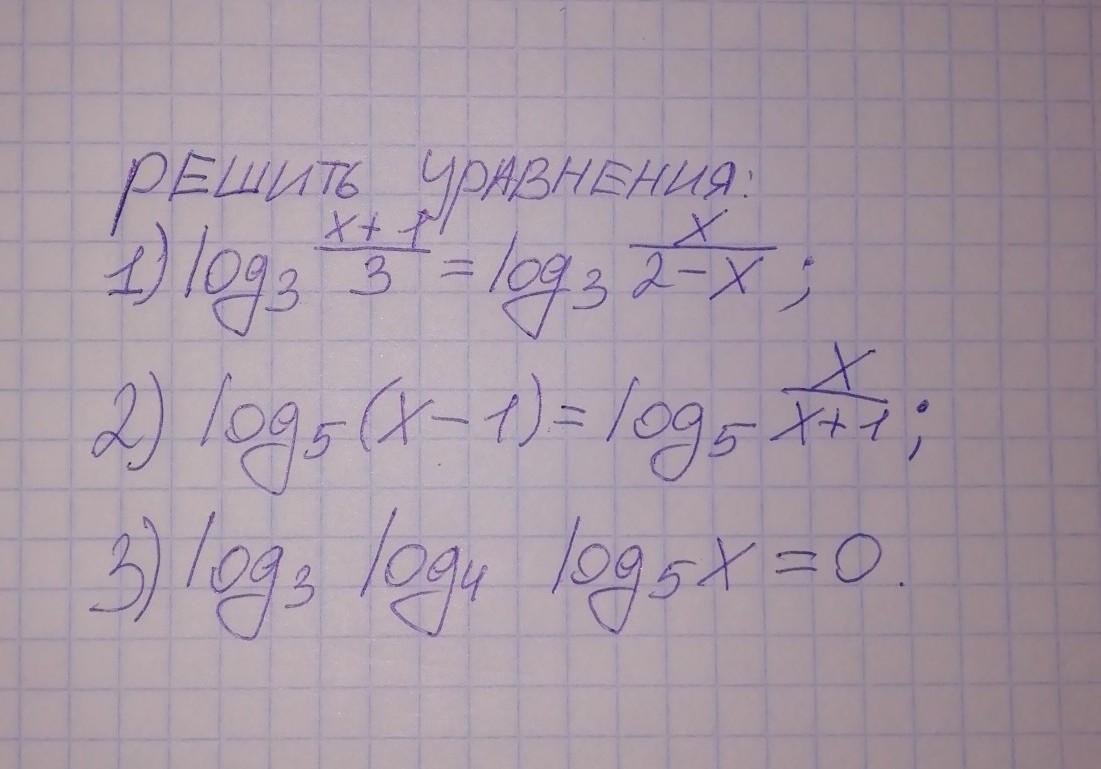 РЕШИТЬ УРАВНЕНИЯ:
1) log₃ (x+1)/3 = log₃ x/(2-x);
2) log₅(x-1) = log₅ x/(x+1);
3) log₃ log₄ log₅x = 0.